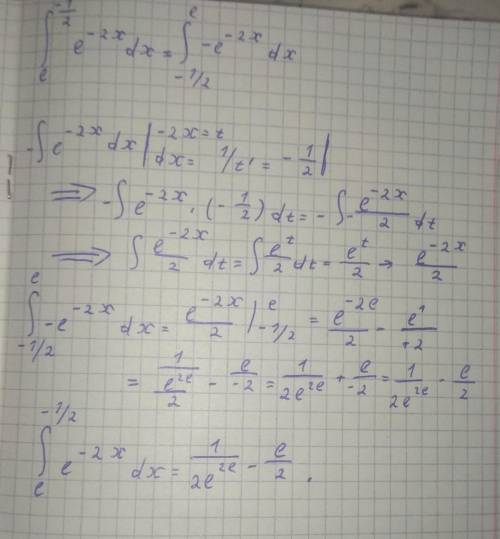 ∫_e^{-1/2} e^{-2x} dx = ∫_{-1/2}^e -e^{-2x} dx
-∫ e^{-2x} dx | -2x = t
dx = 1/t' = -1/2 |
⇒ -∫ e^{-2x} · (-1/2) dt = -∫ - e^{-2x}/2 dt
⇒ ∫ e^{-2x}/2 dt = ∫ e^t/2 dt = e^t/2 → e^{-2x}/2
∫_{-1/2}^e -e^{-2x} dx = e^{-2x}/2 |_{-1/2}^e = e^{-2e}/2 - e^1/+2
= 1/e^{2e}/2 - e/-2 = 1/2e^{2e} + e/-2 = 1/2e^{2e} - e/2
∫_e^{-1/2} e^{-2x} dx = 1/2e^{2e} - e/2 .